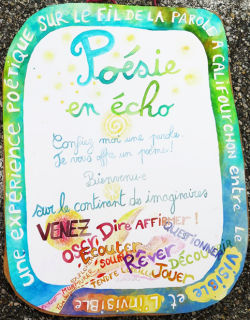 UNE EXPÉRIENCE POÉTIQUE SUR LE FIL DE LA PAROLE À CALIFOURCHON ENTRE LE VISIBLE et L'INVISIBLE
Poésie
en écho
Confiez moi une parole.
Je vous offre un poème!
Bienvenue
sur le continent des imaginaires
VENEZ Dire AFFIRMER !
QUESTIONNER
OSER Écouter
Rêver DÉCOUVRIR
Jouer